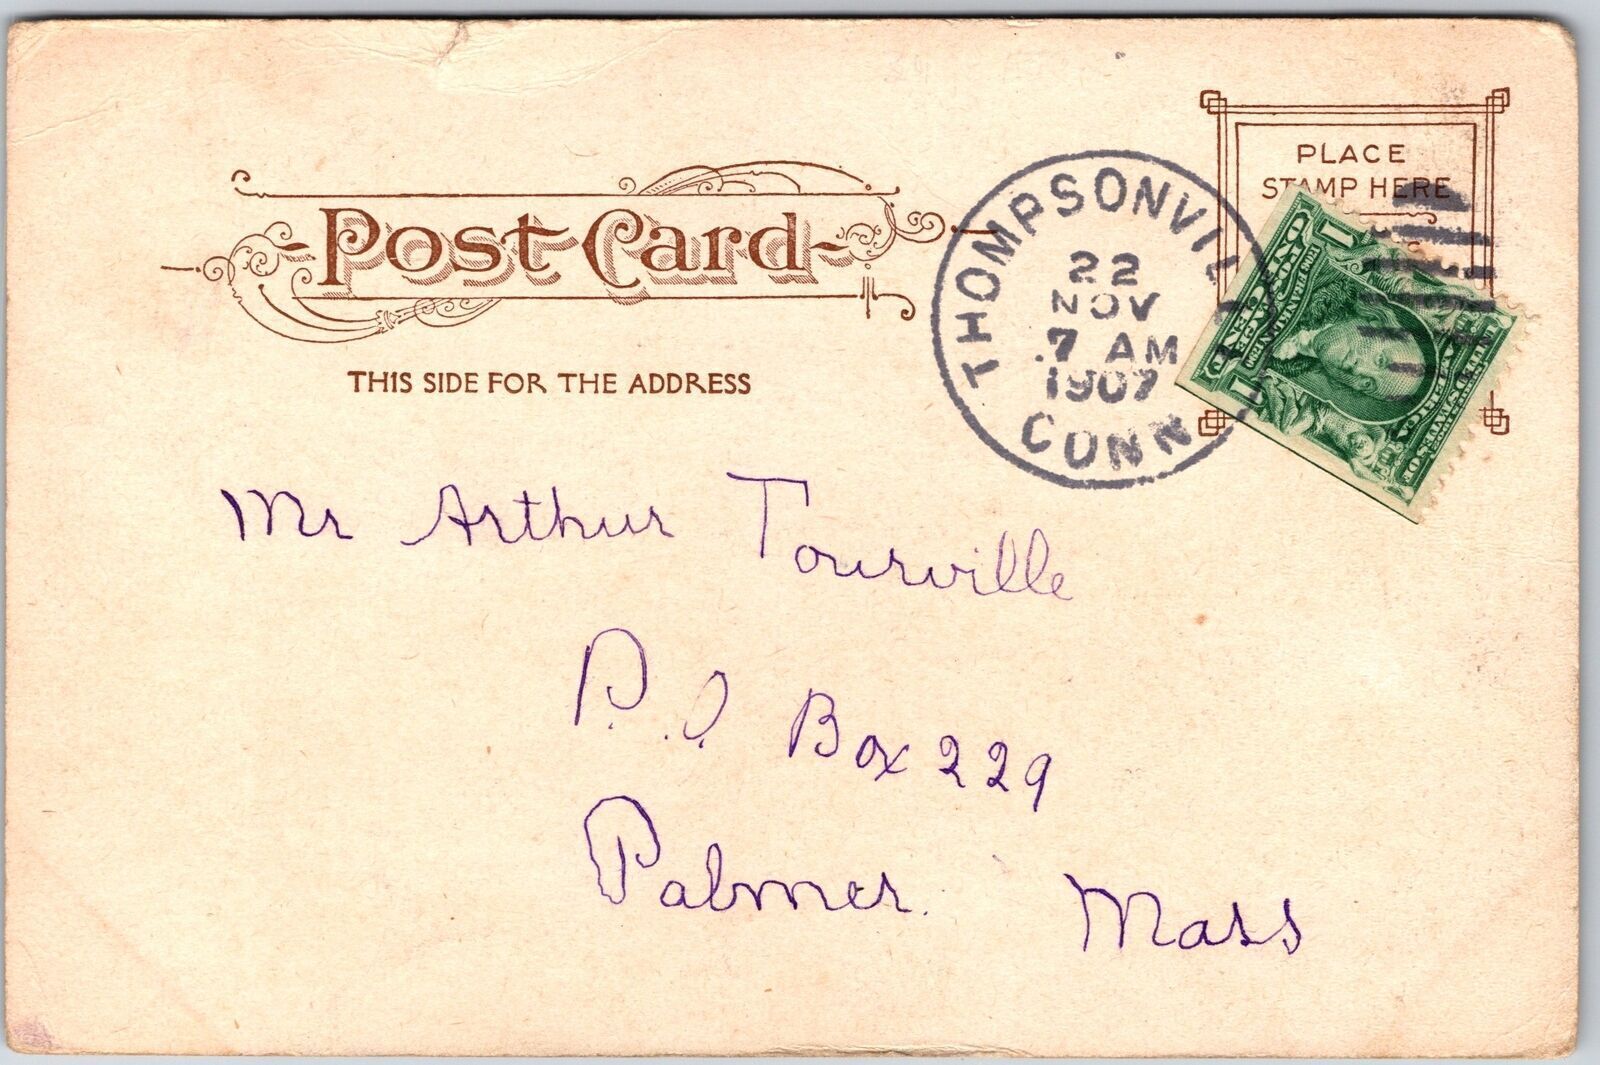 Post Card
THIS SIDE FOR THE ADDRESS
PLACE
STAMP HERE
THOMPSONVIL
22
NOV
7 AM
1907
CONN
Mr Arthur Tourville
P.O. Box 229
Palmer. Mass
1
FRANKLIN
ONE
1